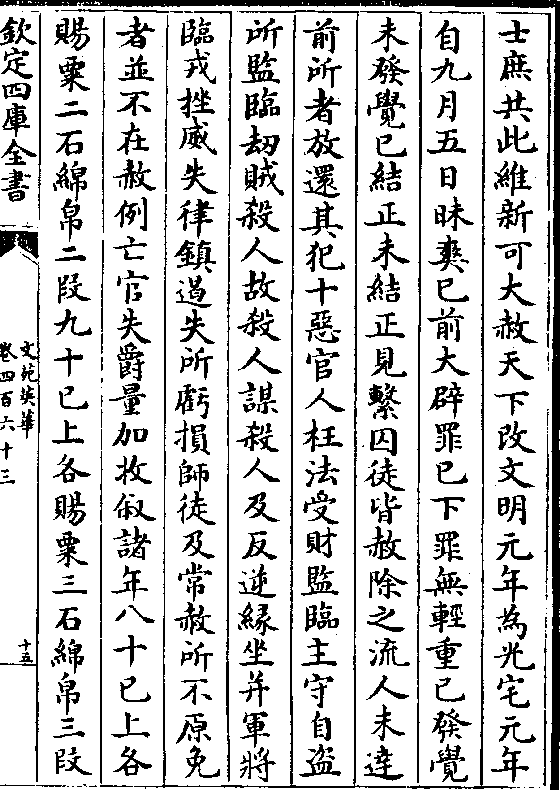 士庶共此維新可大赦天下改文明元年為光宅元年
自九月五日昧爽已前大辟罪已下罪無輕重已發覺
未發覺已結正未結正見繫囚徒皆赦除之流人未達
前所者放還其犯十惡官人枉法受財監臨主守自盗
所監臨劫賊殺人故殺人謀殺人及反逆緣坐并軍將
臨戎挫威失律鎮遏失所虧損師徒及常赦所不原免
者並不在赦例亡官失爵量加收叙諸年八十已上各
賜粟二石綿帛二段九十已上各賜粟三石綿帛三段
欽定四庫全書
文苑英華
卷四百六十三
十五